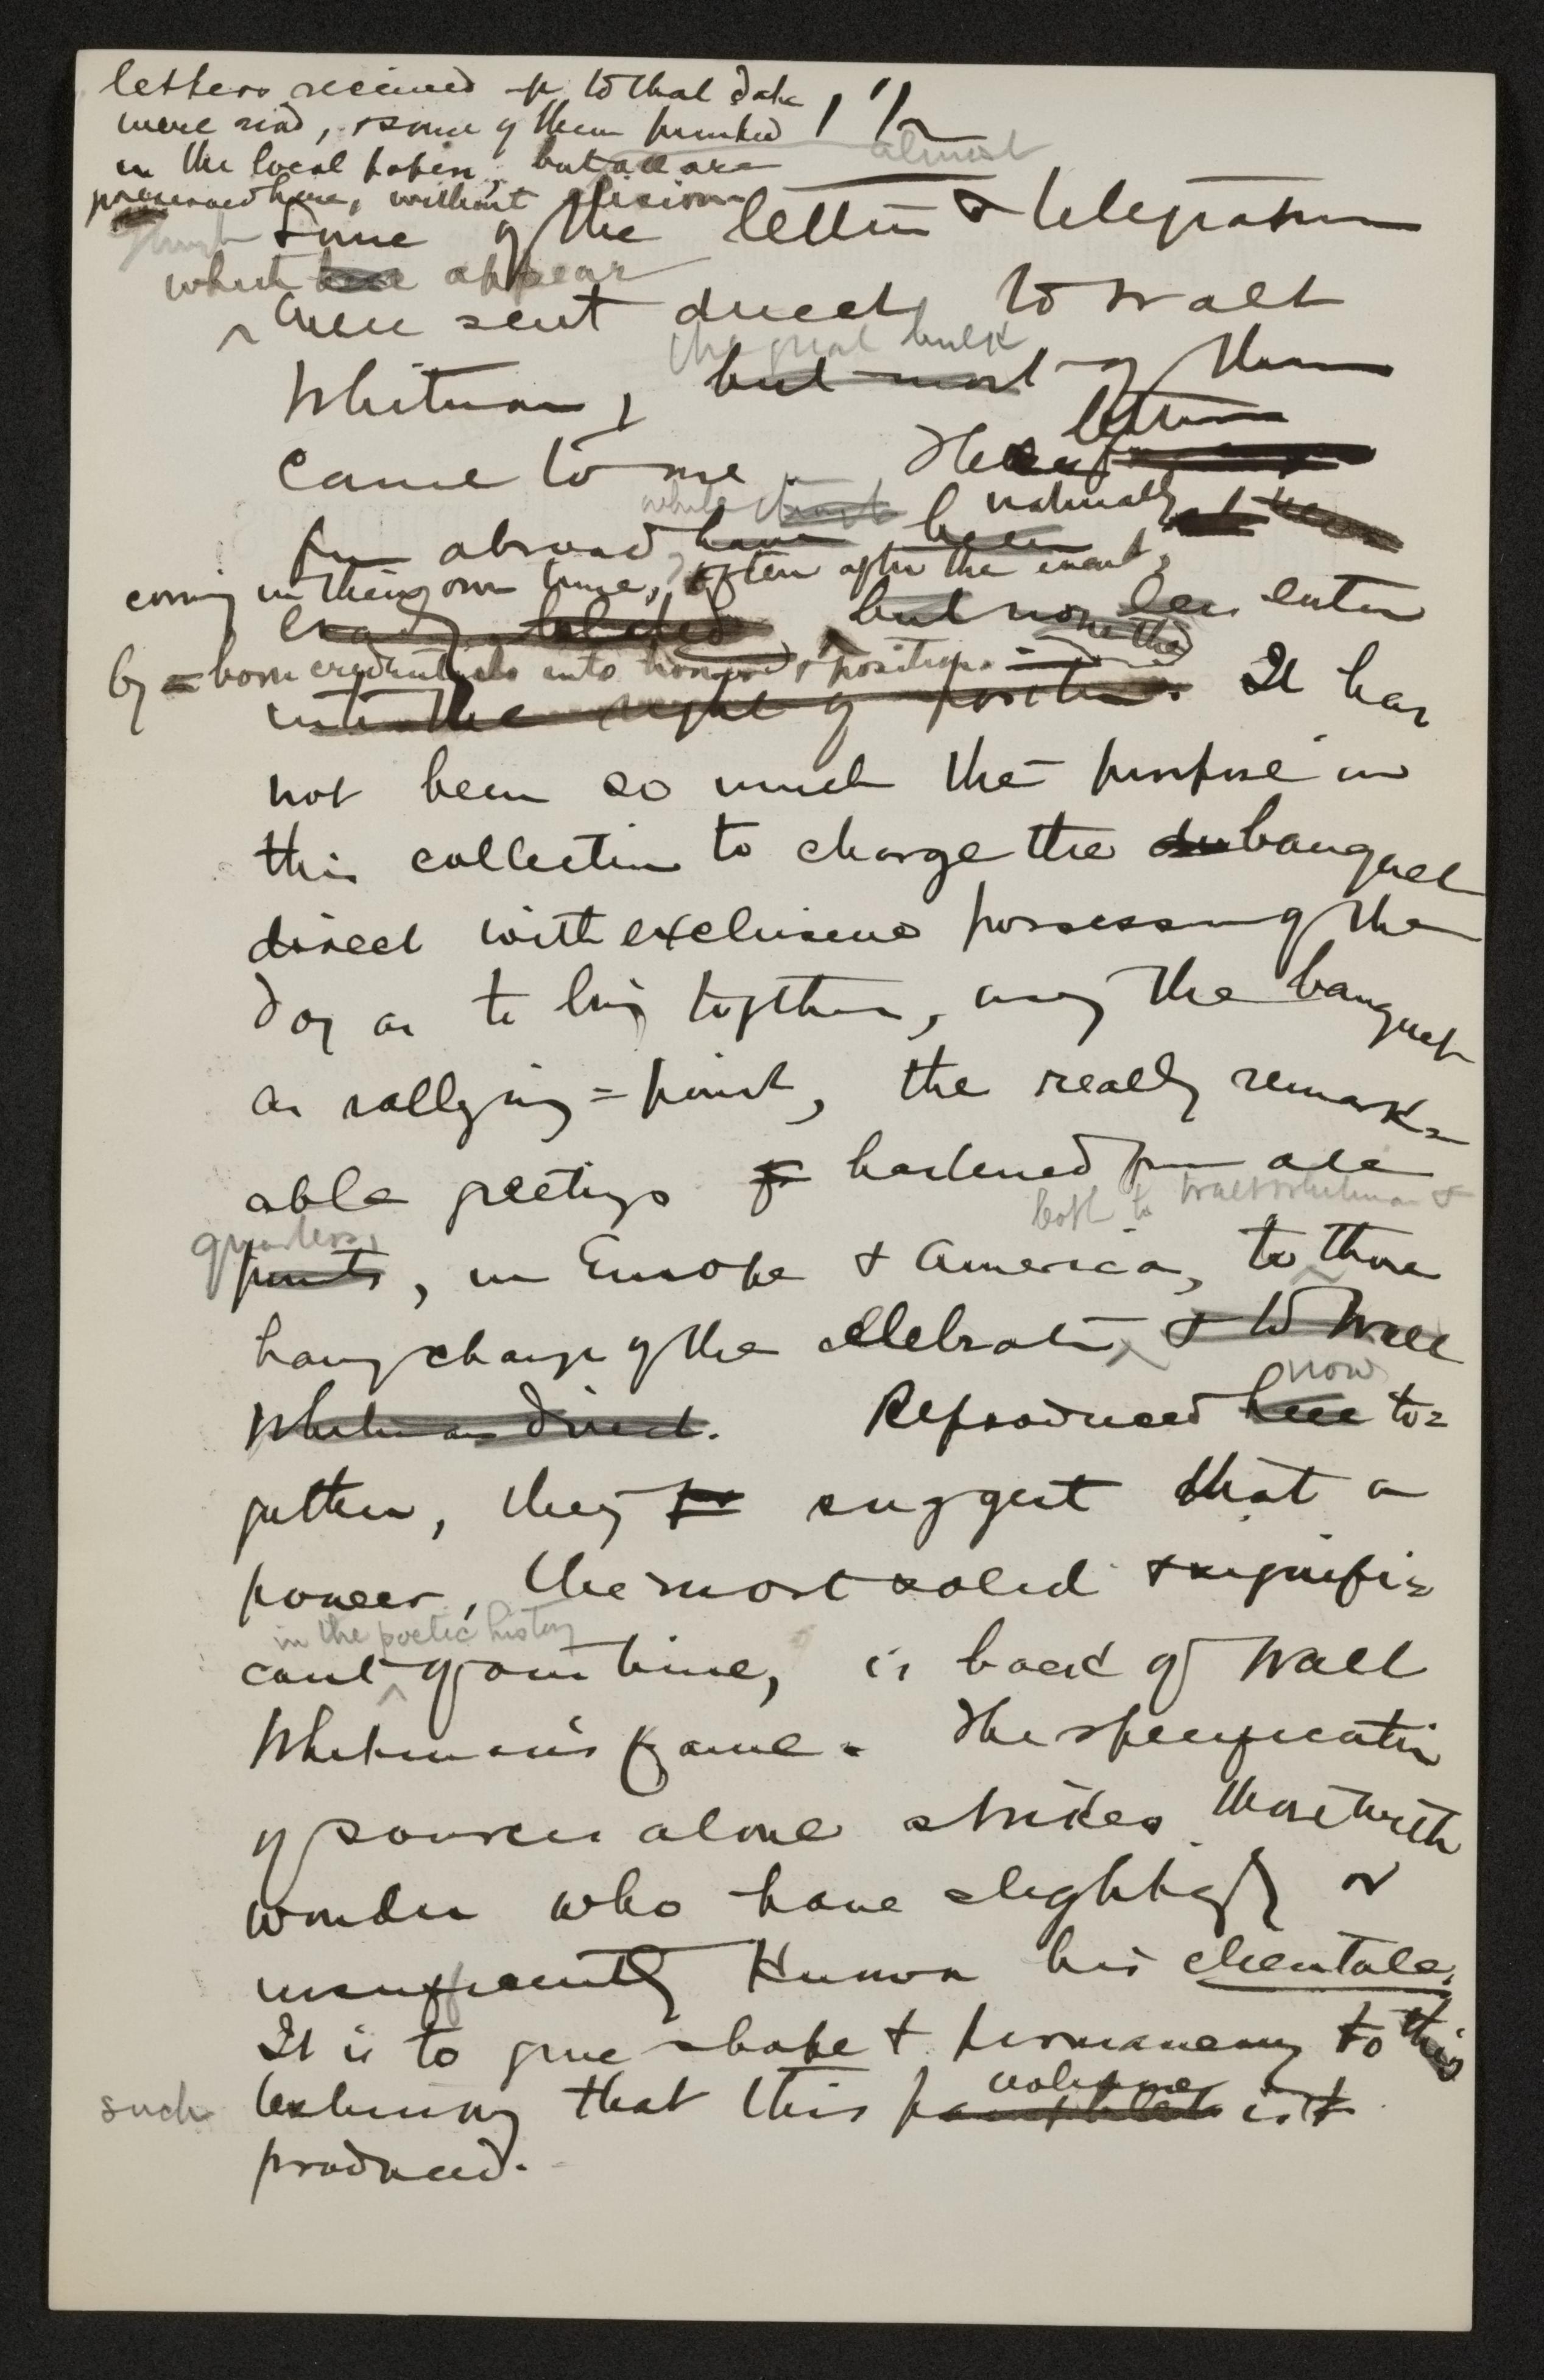 letters received up to that date
were read, & some of them printed
in the local papers, but all are
almost
preserved here, without elision
1 1/2
Some of the letters & telegrams
which here appear
were sent direct to Walt
the great bulk
Whitman, but most of them
came to me. The letters
while naturally
from abroad, have been
coming in their own time, often after the event,
exactly belated, but none the less enter
by born credentials into honored position.
into the right of position. It has
not been so much the purpose in
this collection to charge the banquet
direct with exclusive possessing of the
day as to bring together, using the banquet
as rallying=point, the really remark=
able greetings hastened from all
both to Walt Whitman &
quarters,
points, in Europe & America, to those
having charge of the celebration, & to Walt
now
Whitman direct. Reproduced here to=
gether, they suggest that a
power, the most solid & signifi=
in the poetic history
cant of our time, is back of Walt
Whitman's fame. The specification
of sources alone strikes those with
wonder who have slightingly or
insufficiently known his clientale.
It is to give shape & permanency to this
volume
such testimony that this pamphlet is
produced.